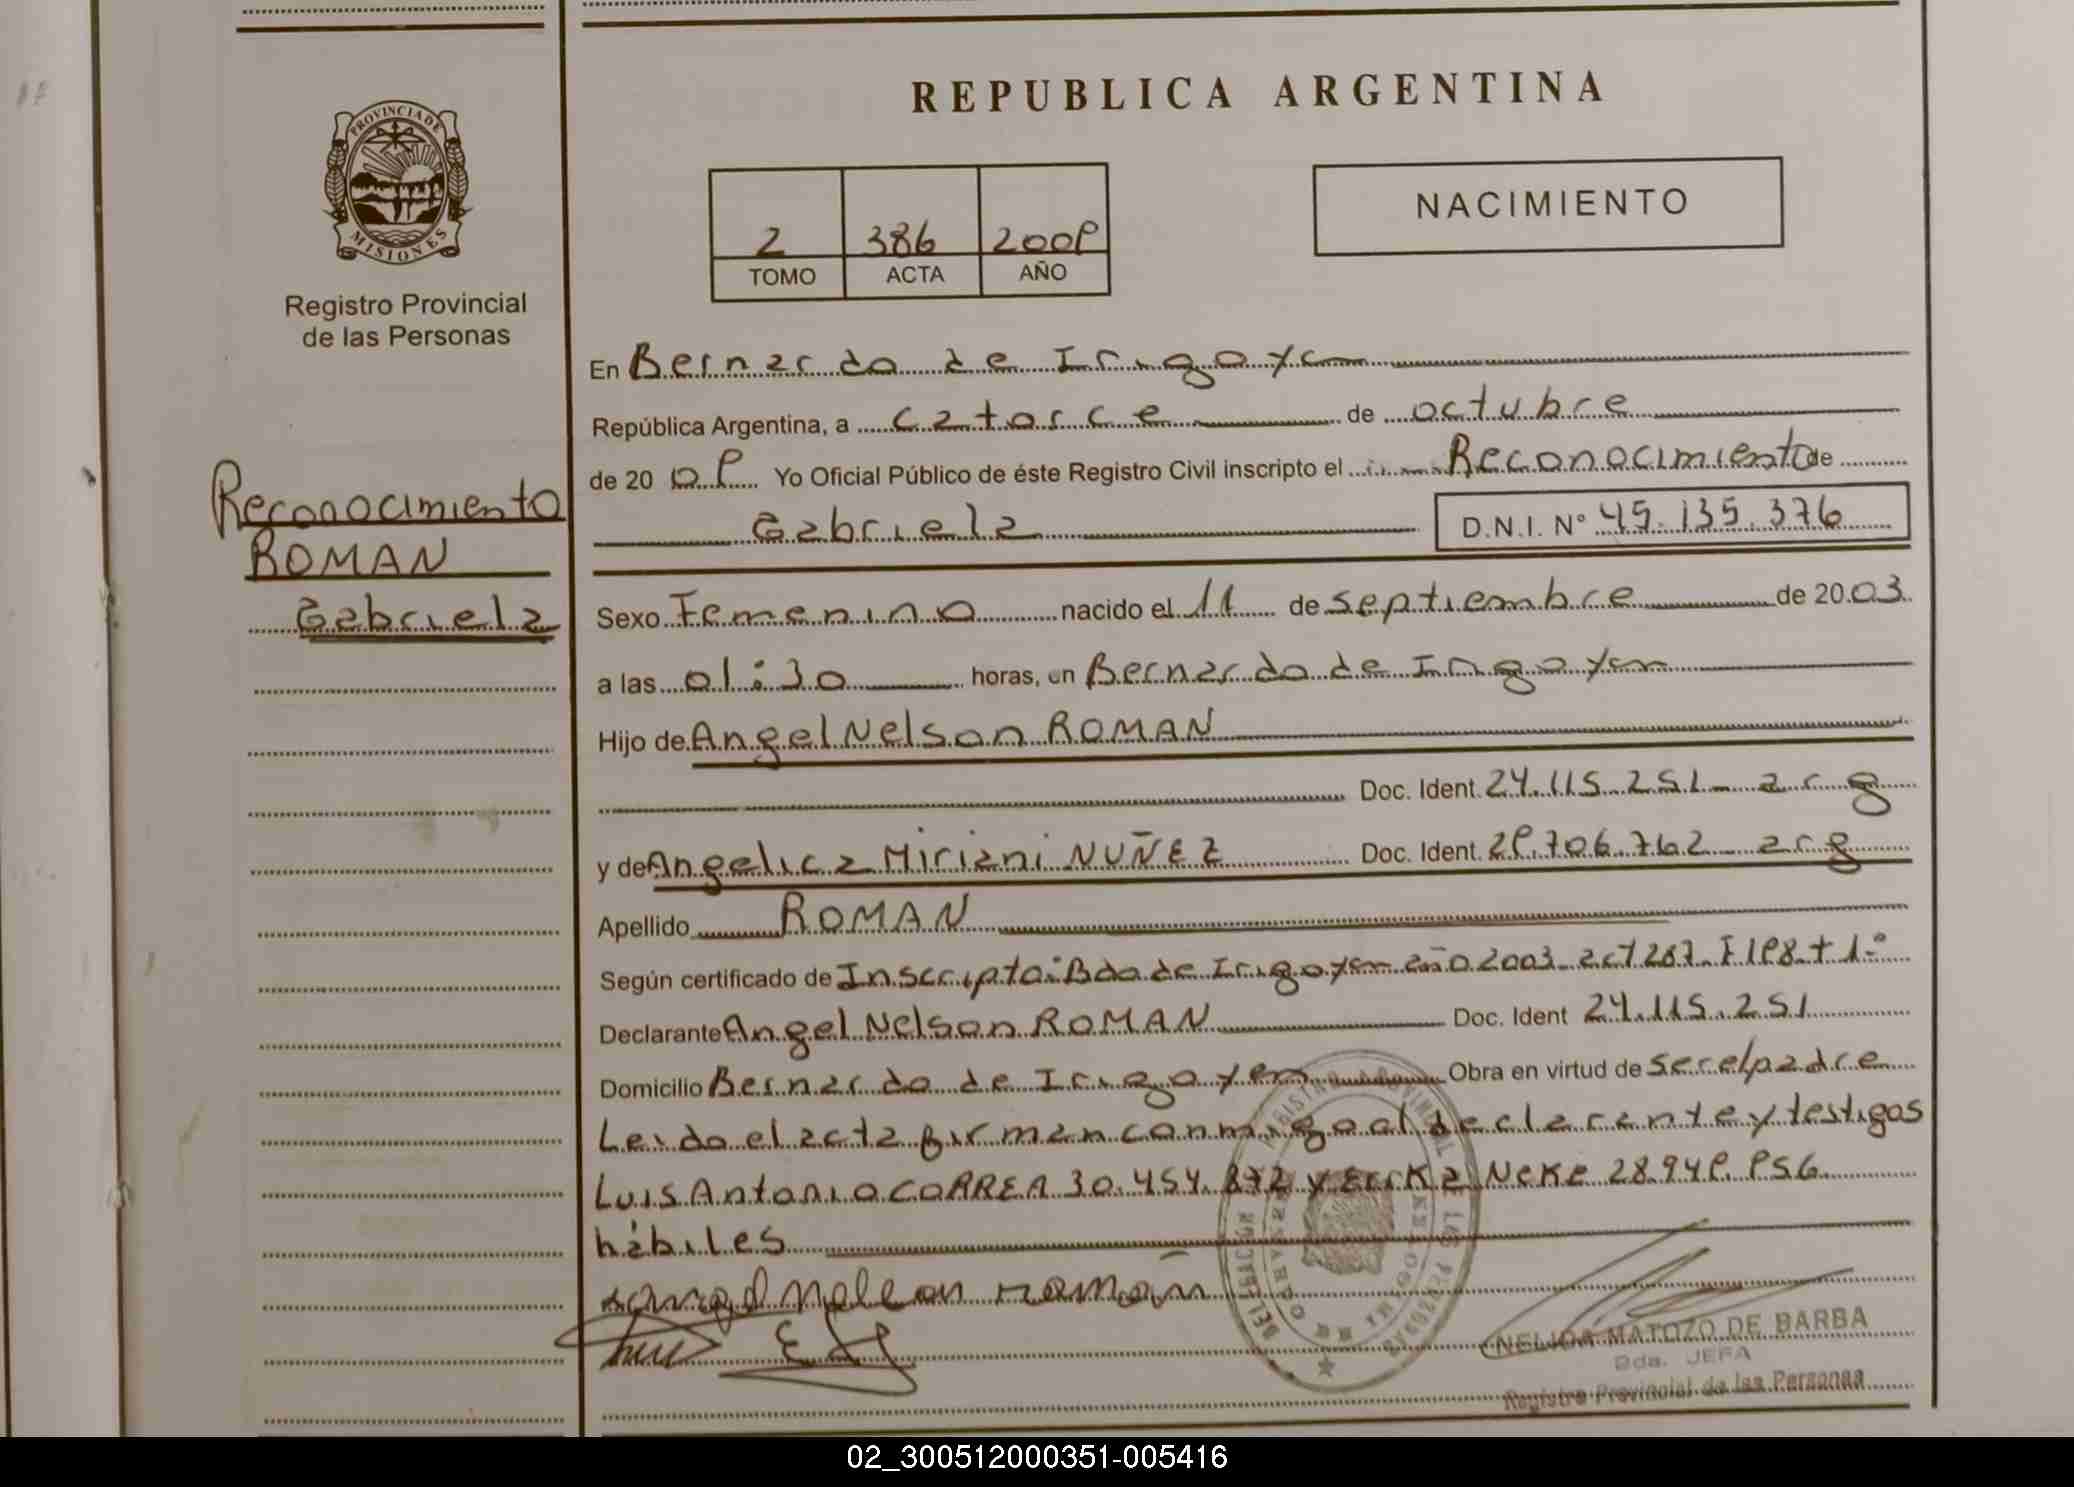 REPUBLICA ARGENTINA
PROVINCIA DE
MISIONES
Registro Provincial
de las Personas
2 386 2009
TOMO ACTA AÑO
NACIMIENTO
Reconocimiento
ROMAN
Gabriela
En Bernardo de Irigoyen
República Argentina, a catorce de octubre
de 20 09 Yo Oficial Público de éste Registro Civil inscripto el Reconocimiento de
Gabriela D.N.I. N° 45.135.376
Sexo Femenino nacido el 11 de septiembre de 20 03
a las 01:30 horas, en Bernardo de Irigoyen
Hijo de Angel Nelson ROMAN
Doc. Ident. 24.115.251 - arg
y de Angelica Miriani NUÑEZ Doc. Ident. 29.706.762 arg
Apellido ROMAN
Según certificado de Inscripta: Bdo de Irigoyen año 2003 act 267 F 198 t 1º
Declarante Angel Nelson ROMAN Doc. Ident 24.115.251
Domicilio Bernardo de Irigoyen Obra en virtud de ser el padre
Leido el acta firman conmigo al declarante y testigos
Luis Antonio CORREA 30.454.872 y Erika NEKE 28.949.956
hábiles
nelson roman
NELIDA MATOZO DE BARBA
Bda. JEFA
Registro Provincial de las Personas
02_300512000351-005416